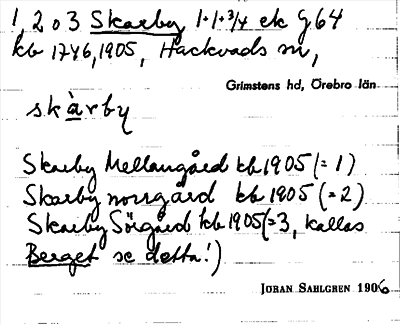 1, 2 o 3 Skarby 1+1+3/4 ek g 64
kb 1746, 1905, Hackvads sn,
Grimstens hd, Örebro län
skàrby
Skarby Mellangård kb 1905 (= 1)
Skarby norrgård kb 1905 (= 2)
Skarby Sörgård kb 1905 (= 3, kallas
Berget se detta!)
JÖRAN SAHLGREN 1906